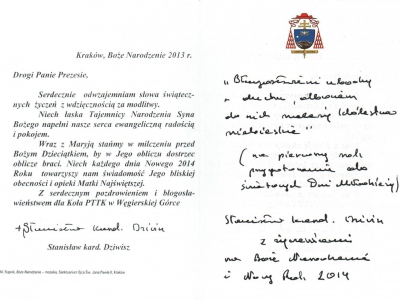 Kraków, Boże Narodzenie 2013 r.
Drogi Panie Prezesie,
Serdecznie odwzajemniam słowa świątecz-
nych życzeń z wdzięcznością za modlitwy.
Niech łaska Tajemnicy Narodzenia Syna
Bożego napełni nasze serca ewangeliczną radością
i pokojem.
Wraz z Maryją stańmy w milczeniu przed
Bożym Dzieciątkiem, by w Jego obliczu dostrzec
oblicze braci. Niech każdego dnia Nowego 2014
Roku towarzyszy nam świadomość Jego bliskiej
obecności i opieki Matki Najświętszej.
Z serdecznym pozdrowieniem i błogosła-
wieństwem dla Koła PTTK w Węgierskiej Górce
+ Stanisław kard. Dziwisz
Stanisław kard. Dziwisz
"Błogosławieni ubodzy
w duchu, albowiem
do nich należy królestwo
niebieskie"
(na pierwszy rok
przygotowania do
Światowych Dni Młodzieży)
Stanisław kard. Dziwisz
z życzeniami
na Boże Narodzenie
i Nowy Rok 2014